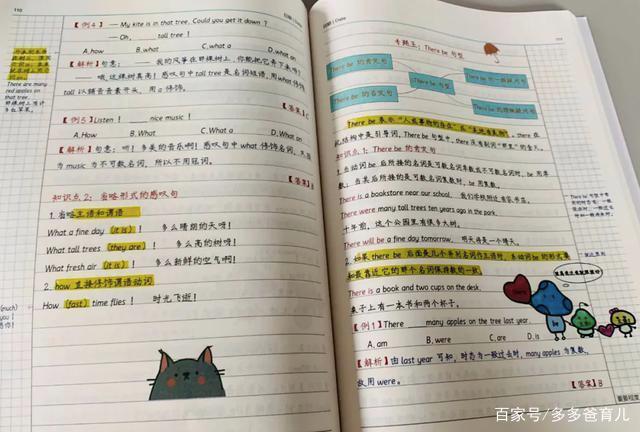 110
【例4】 — My kite is in that tree. Could you get it down ?
— Oh, ____ tall tree !
A. how B. what C. what a D. what an
【解析】句意: — 我的风筝在那棵树上, 你能把它弄下来吗?
— 哦, 这棵树真高! 感叹句中 tall tree 是名词短语, 用 what 修饰,
tall 以辅音音素开头, 用 a 修饰。
【答案】C
【例5】Listen ! ____ nice music !
A. How B. What C. What a D. What an
【解析】句意: 听! 多美的音乐啊! 感叹句中 what 修饰名词, 又因
为 music 为不可数名词, 所以不用冠词。
【答案】B
知识点 2: 省略形式的感叹句
1. 省略主语和谓语
What a fine day (it is) ! 多么晴朗的天呀!
What tall trees (they are) ! 多么高的树呀!
What fresh air (it is) ! 多么新鲜的空气啊!
2. how 直接修饰谓语动词
How (fast) time flies ! 时光飞逝!
There are
many
red apples on
that tree.
专题五: There be 句型
There be 的肯定句
There be 句型
There be 的否定句
There be 的一般疑问句
There be 表示 “人或事物的存在” 或 “某地有某物”。there 在
此结构中是引导词, There be 句型中, there 没有副词 “那里” 的含义。
知识点 1: There be 的肯定句
1. 当动词 be 后所接的名词是可数名词单数或不可数名词时, be 用单
数; 当其后所接的是可数名词复数时, be 用复数。
There is a bookstore near our school. 我们学校附近有家书店。
There were many tall trees ten years ago in the park.
十年前, 这个公园里有很多大树。
There will be a fine day tomorrow. 明天将是一个晴天。
2. 如果 there be 后面是几个并列名词作主语时, 系动词 be 的形式要
和最靠近它的那个名词保持数的一致。
There is a book and two cups on the desk.
桌子上有一本书和两个杯子。
【例1】There ____ many apples on the tree last year.
A. am B. were C. are D. is
【解析】由 last year 可知, 时态为一般过去时, many apples 为复数,
故用 were。
【答案】B
There
be
百家号/多多爸育儿